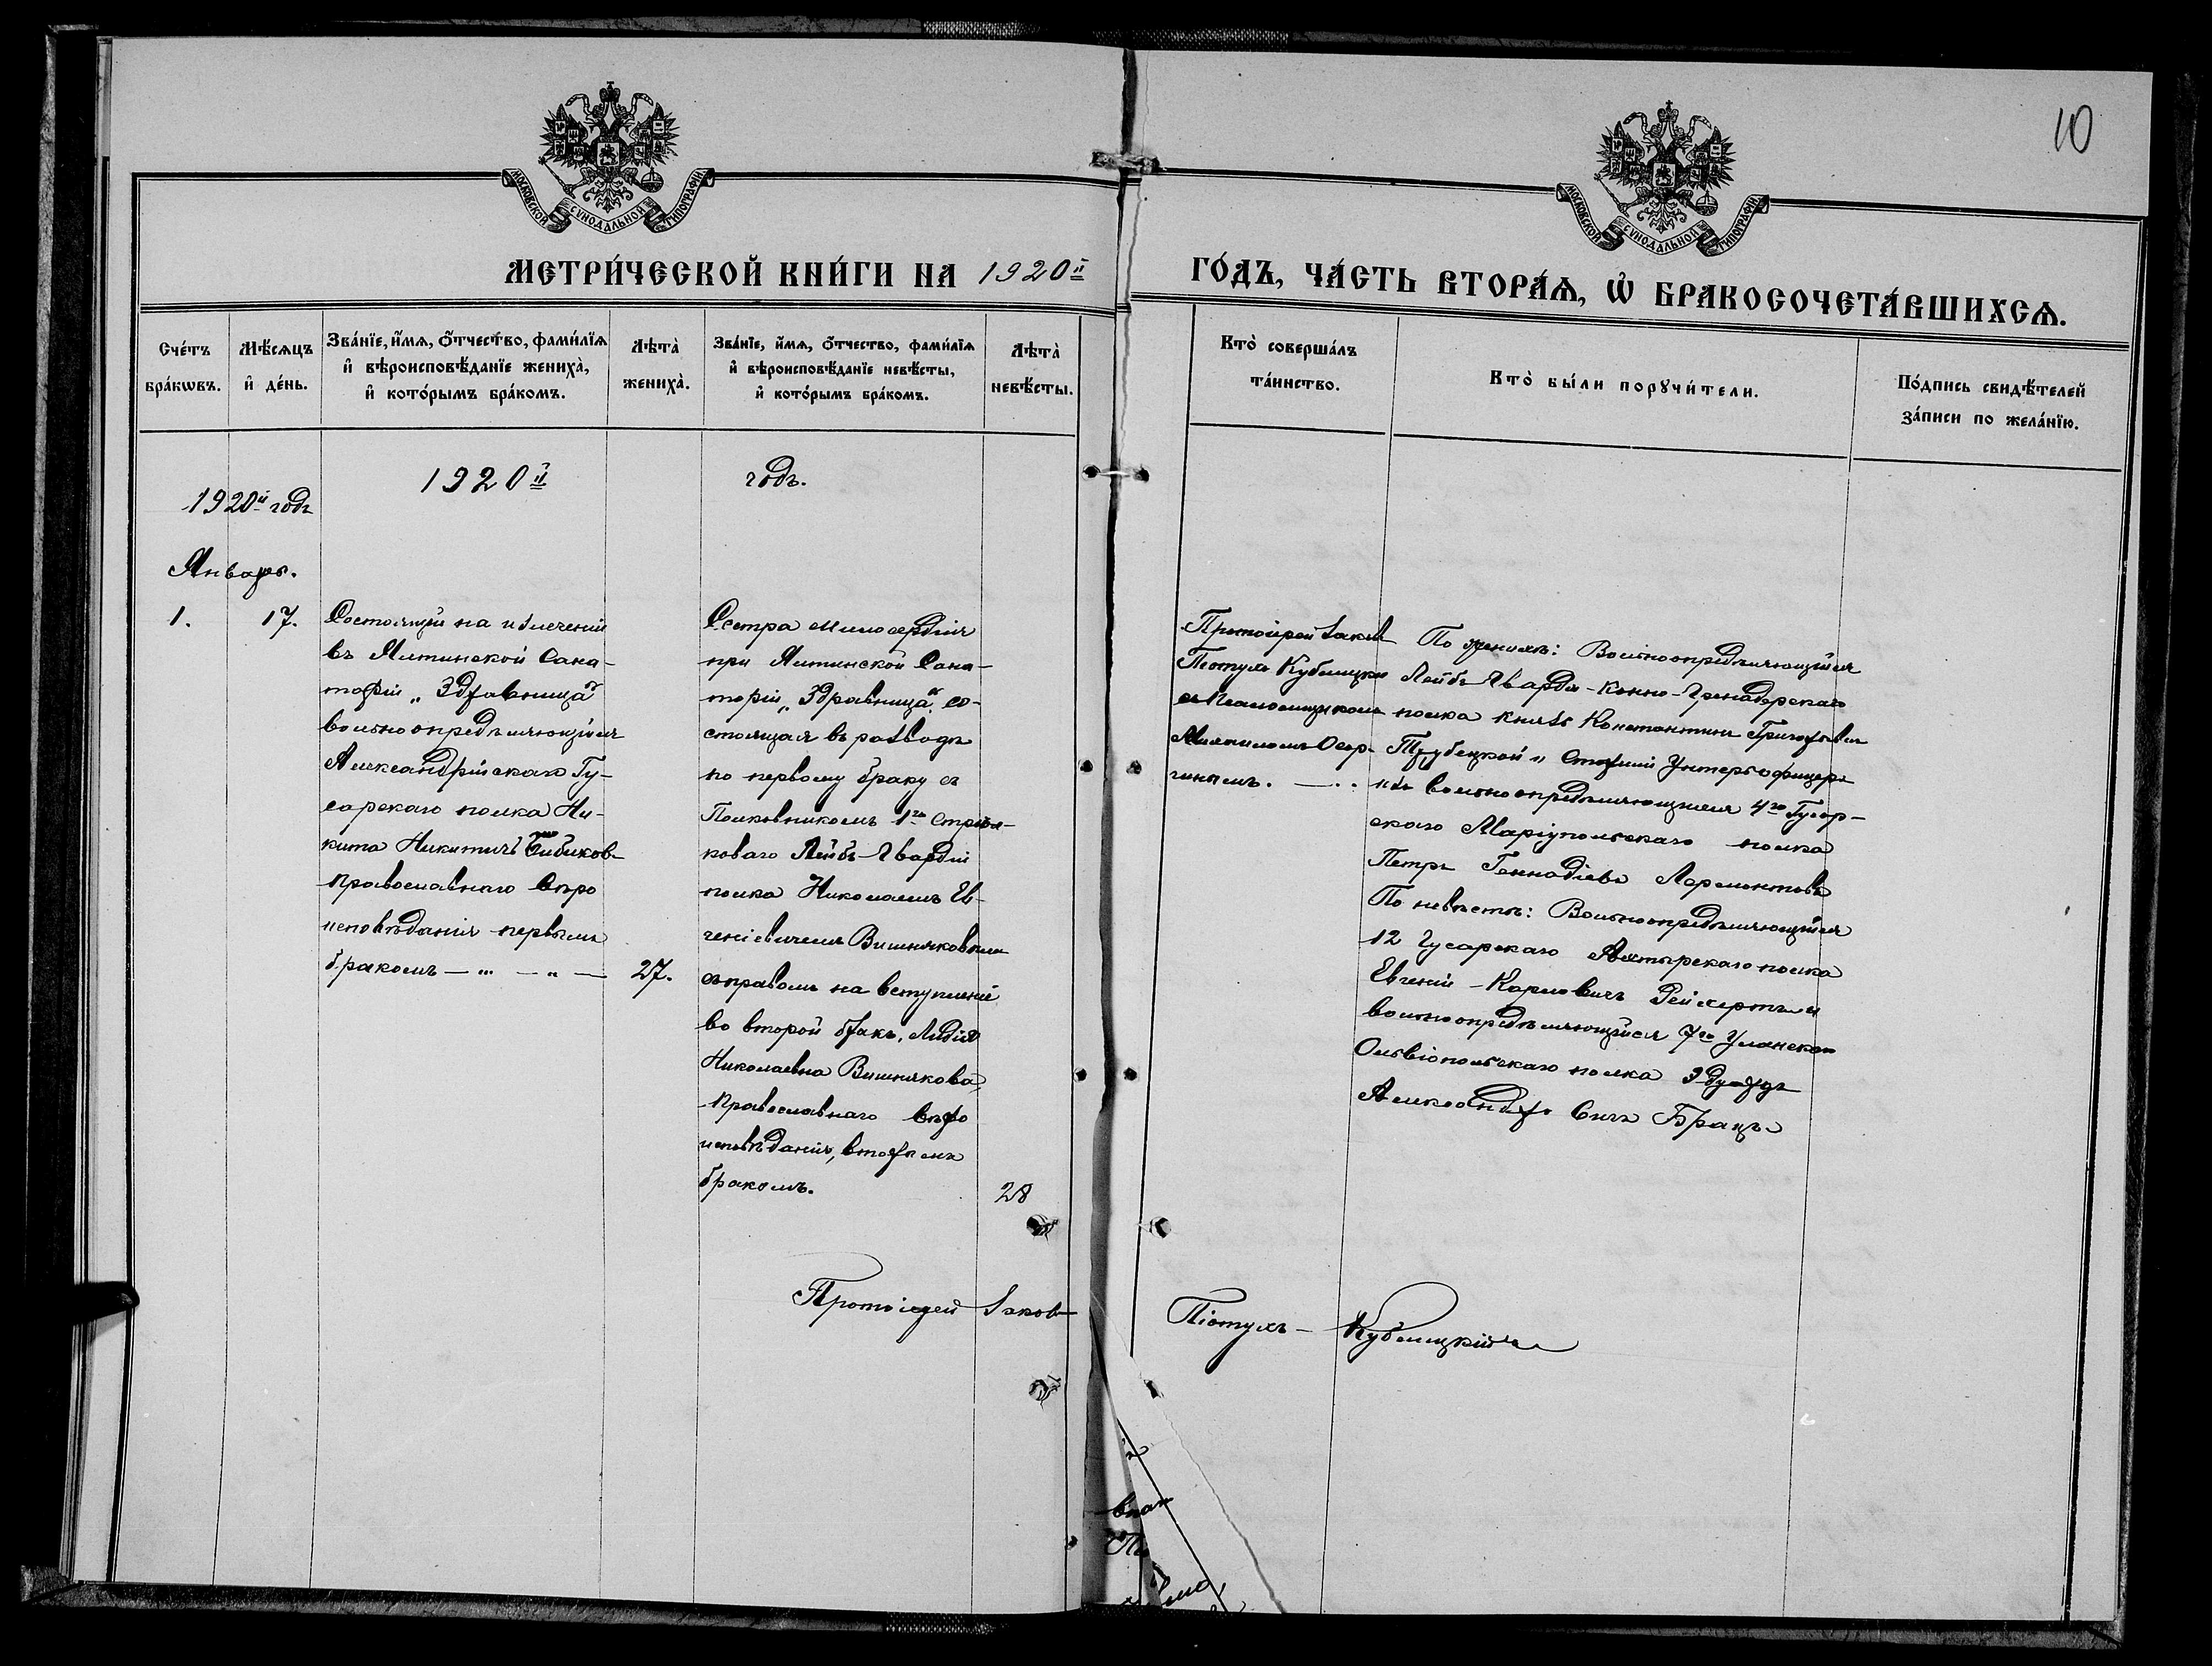 10
МОСКОВСКОЙ СѴНОДАЛЬНОЙ ТИПОГРАФІИ
МОСКОВСКОЙ СѴНОДАЛЬНОЙ ТИПОГРАФІИ
МЕТРИ́ЧЕСКОЙ КНИ́ГИ НА 1920й
ГО́ДЪ, ЧА́СТЬ ВТОРА́Ѧ, Ѡ҆ БРАКОСОЧЕТА́ВШИХСѦ.
Сче́тъ
бра́кѡвъ.
Мѣ́сѧцъ
и҆ де́нь.
Зва́нїе, и҆́мѧ, ѻ҆́тчество, фами́лїѧ
и҆ вѣроисповѣ́данїе женихà,
и҆ кото́рымъ бра́комъ.
Лѣтà
женихà.
Зва́нїе, и҆́мѧ, ѻ҆́тчество, фами́лїѧ
и҆ вѣроисповѣ́данїе невѣ́сты,
и҆ кото́рымъ бра́комъ.
Лѣтà
невѣ́сты.
Кто̀ соверша́лъ
та́инство.
Кто̀ бы́ли порꙋчи́тели.
По́дпись свидѣ́телей
за́писи по жела́нїю.
1920й годъ
1920й
годъ.
Январь.
1.
17.
Состоящій на излеченіи
въ Ялтинской Сана-
торіи „Здравница"
вольноопредѣляющійся
Александрійскаго Гу-
сарскаго полка Ни-
кита Никитичъ Бибиковъ
православнаго вѣро
исповѣданія первымъ
бракомъ — „ — „ —
27.
Сестра милосердія
при Ялтинской Сана-
торіи „Здравница", со-
стоящая въ разводѣ
по первому браку съ
Полковникомъ 1го Стрѣл-
коваго Лейбъ-Гвардіи
полка Николаемъ Ев-
геніевичемъ Вишняковымъ
съ правомъ на вступленіе
во второй бракъ, Лидія
Николаевна Вишнякова,
православнаго вѣро
исповѣданія, вторымъ
бракомъ.
28
Протоіерей Іаковъ
Піотухъ Кубл
съ Псаломщикомъ
Михаиломъ
По женихѣ: Вольноопредѣляющійся
Лейбъ Гвардіи-Конно-Гренадерскаго
полка князь Константинъ Григорьевъ
Трубецкой и Старшій Унтеръ-офицеръ
изъ вольноопредѣляющихся 4го Гусар-
скаго Маріупольскаго полка
Петръ Геннадіевъ Лермонтовъ
По невѣстѣ: Вольноопредѣляющійся
12 Гусарскаго Ахтырскаго полка
Евгеній Карловичъ Рейхертъ и
вольноопредѣляющійся 7го Уланскаго
Ольвіопольскаго полка Эдуардъ
Александровичъ
Протоіерей Іаковъ
Піотухъ-
Кублицкій